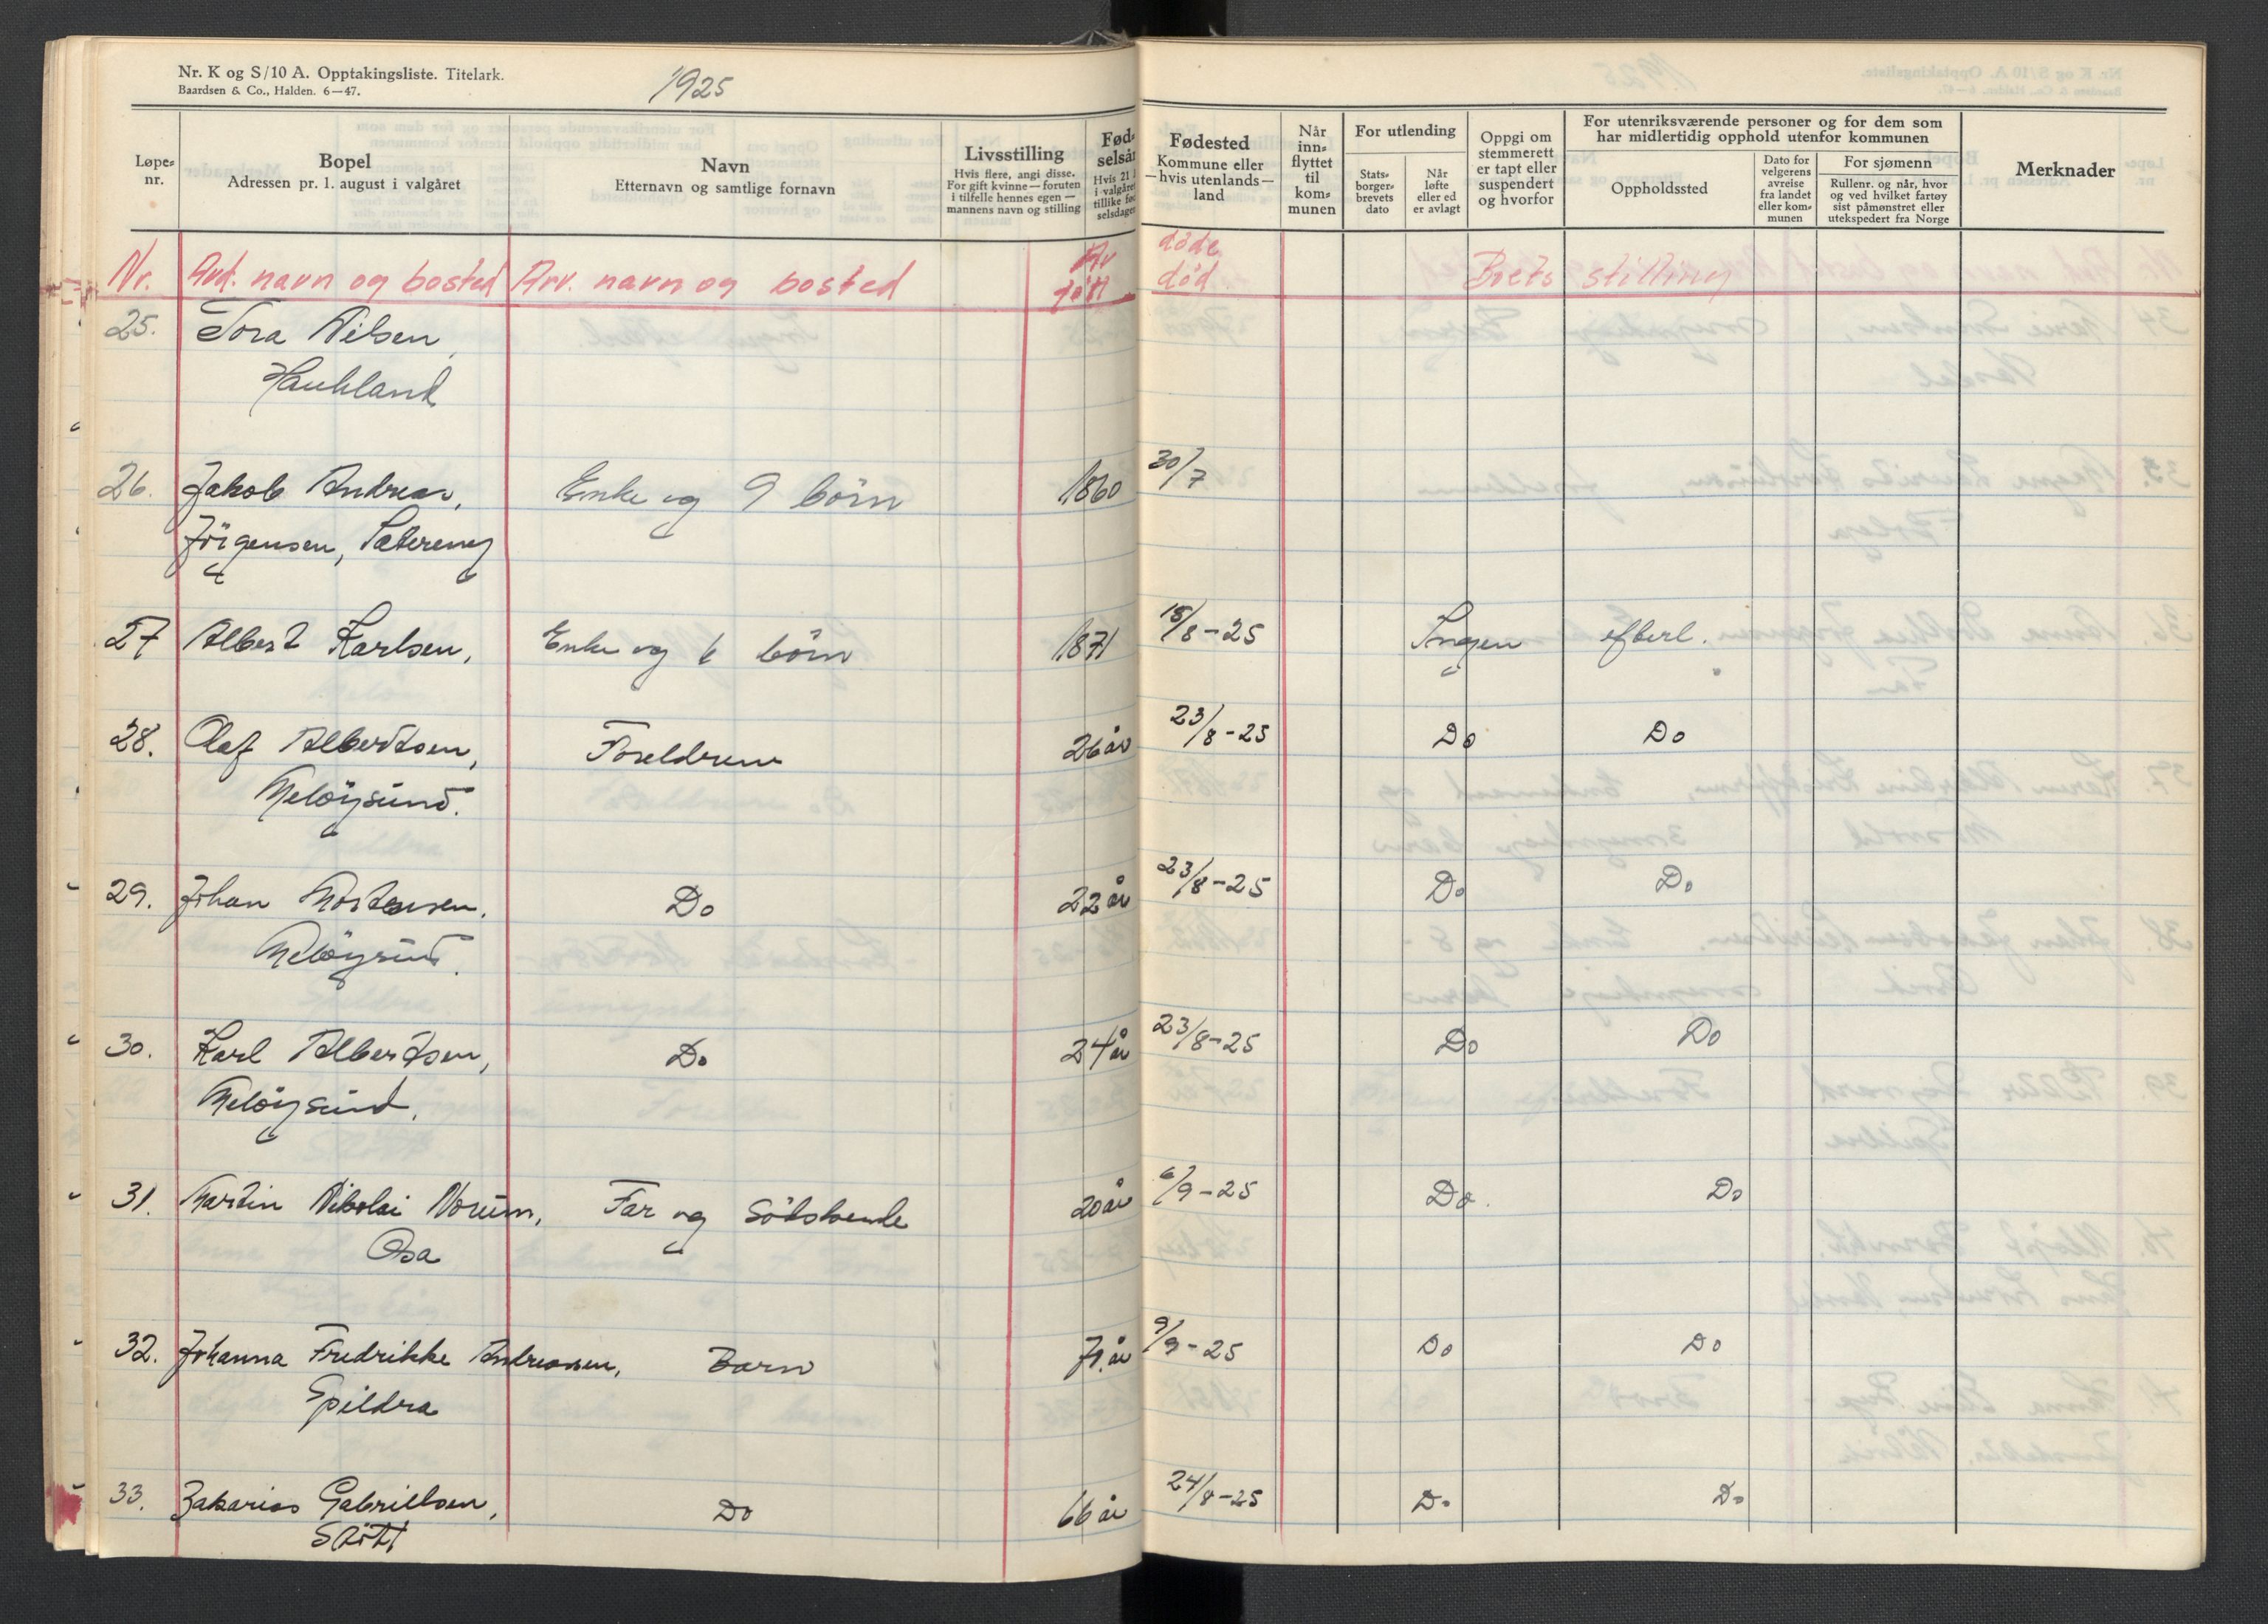 Nr. K og S/10 A. Opptakingsliste. Titelark.
Baardsen & Co., Halden. 6—47.
1925
Løpe-nr.
Bopel
Adressen pr. 1. august i valgåret
Navn
Etternavn og samtlige fornavn
Livsstilling
Hvis flere, angi disse.
For gift kvinne — foruten
i tilfelle hennes egen —
mannens navn og stilling
Fød-
selsår
Hvis 21 å
i valgåret
tillike fød
selsdagen
Fødested
Kommune eller
— hvis utenlands —
land
Når
inn-
flyttet
til
kom-
munen
For utlending
Stats-
borger-
brevets
dato
Når
løfte
eller ed
er avlagt
Oppgi om
stemmerett
er tapt eller
suspendert
og hvorfor
For utenriksværende personer og for dem som
har midlertidig opphold utenfor kommunen
Oppholdssted
Dato for
velgerens
avreise
fra landet
eller kom-
munen
For sjømenn
Rullenr. og når, hvor
og ved hvilket fartøy
sist påmønstret eller
utekspedert fra Norge
Merknader
Nr. Avd. navn og bosted Arv. navn og bosted År født døde død Boets stilling
25. Tora Nilsen,
Haukland
26. Jakob Andreas, Enke og 9 börn 1860 30/7
Jörgensen,
27 Albert Karlsen, Enke og 6 börn 1871 15/8-25 Ingen efterl.
28. Olaf Albertsen, Foreldrene 26 år 23/8-25 Do Do
Melöysund.
29. Johan Mortensen. Do 22 år 23/8-25 Do Do
Melöysund.
30. Karl Albertsen, Do 24 år 23/8-25 Do Do
Melöysund.
31. Martin Nikolai Norum, Far og södskende 20 år 6/9-25 Do. Do
Osa
32. Johanna Fredrikke Andreasen, Barn 71 år 9/9-25 Do Do
Spildra
33. Zakarias Gabrielsen, Do 66 år 24/8-25 Do Do
Stött